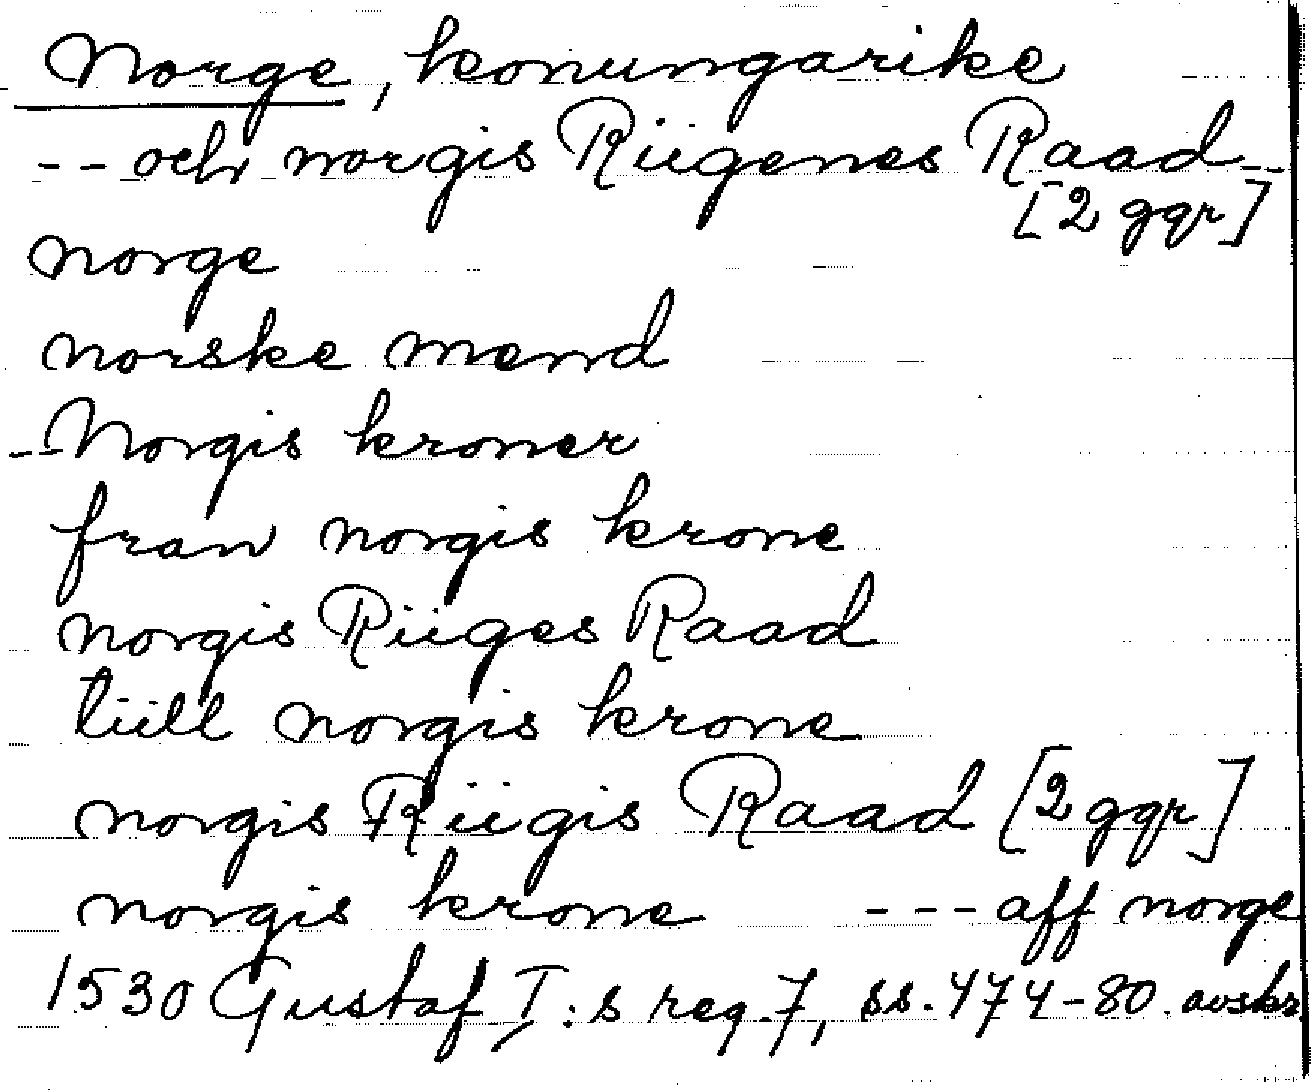 Norge, konungarike
-- och norgis Riigenes Raad --
[2 ggr]
norge
norske mend
-- Norgis kroner
fran norgis krone
norgis Riiges Raad
tiill norgis krone
norgis Riigis Raad [2 ggr]
norgis krone --- aff norge
1530 Gustaf I:s reg. 7, ss. 474-80. avskr.